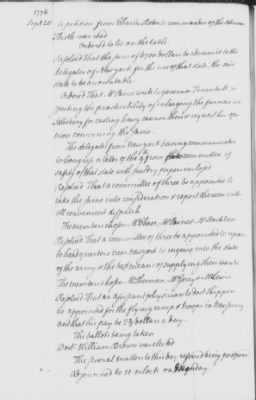 1776
Sept 20. A petition from Charles Roberts commander of the
Thistle was read
Ordered to lie on the table.
Resolved That the sum of dollars be advanced to the
delegates of New york for the use of that state. the said
state to be accountable.
Ordered That Mr Paine write to governor Trumbull, in
the practicability of enlarging the furnace at
Salisbury for casting heavy cannon & request his opi
nion concerning the same.
The delegates from New york having communicated
to congress a letter of the from the committee of
safety of that state with sundry papers inclosed
Resolved That a committee of three be appointed to
take the same into consideration & report thereon with
all convenient despatch.
The members chosen Mr Chase, Mr Paine & Mr Stockton
Resolved That a committee of three be appointed to repair
to head quarters near new york to enquire into the state
of the army & the best means of supplying their wants.
The members chosen Mr Sherman, Mr Gerry & Mr Lewis
Resolved That an assistant physician to doct Shippen
be appointed for the flying camp & troops in New Jersey
and that his pay be dollars a day.
The ballots being taken
Doct William Brown was elected
The several matters to this day referred being postponed
Adjourned to 10 oclock on Monday.